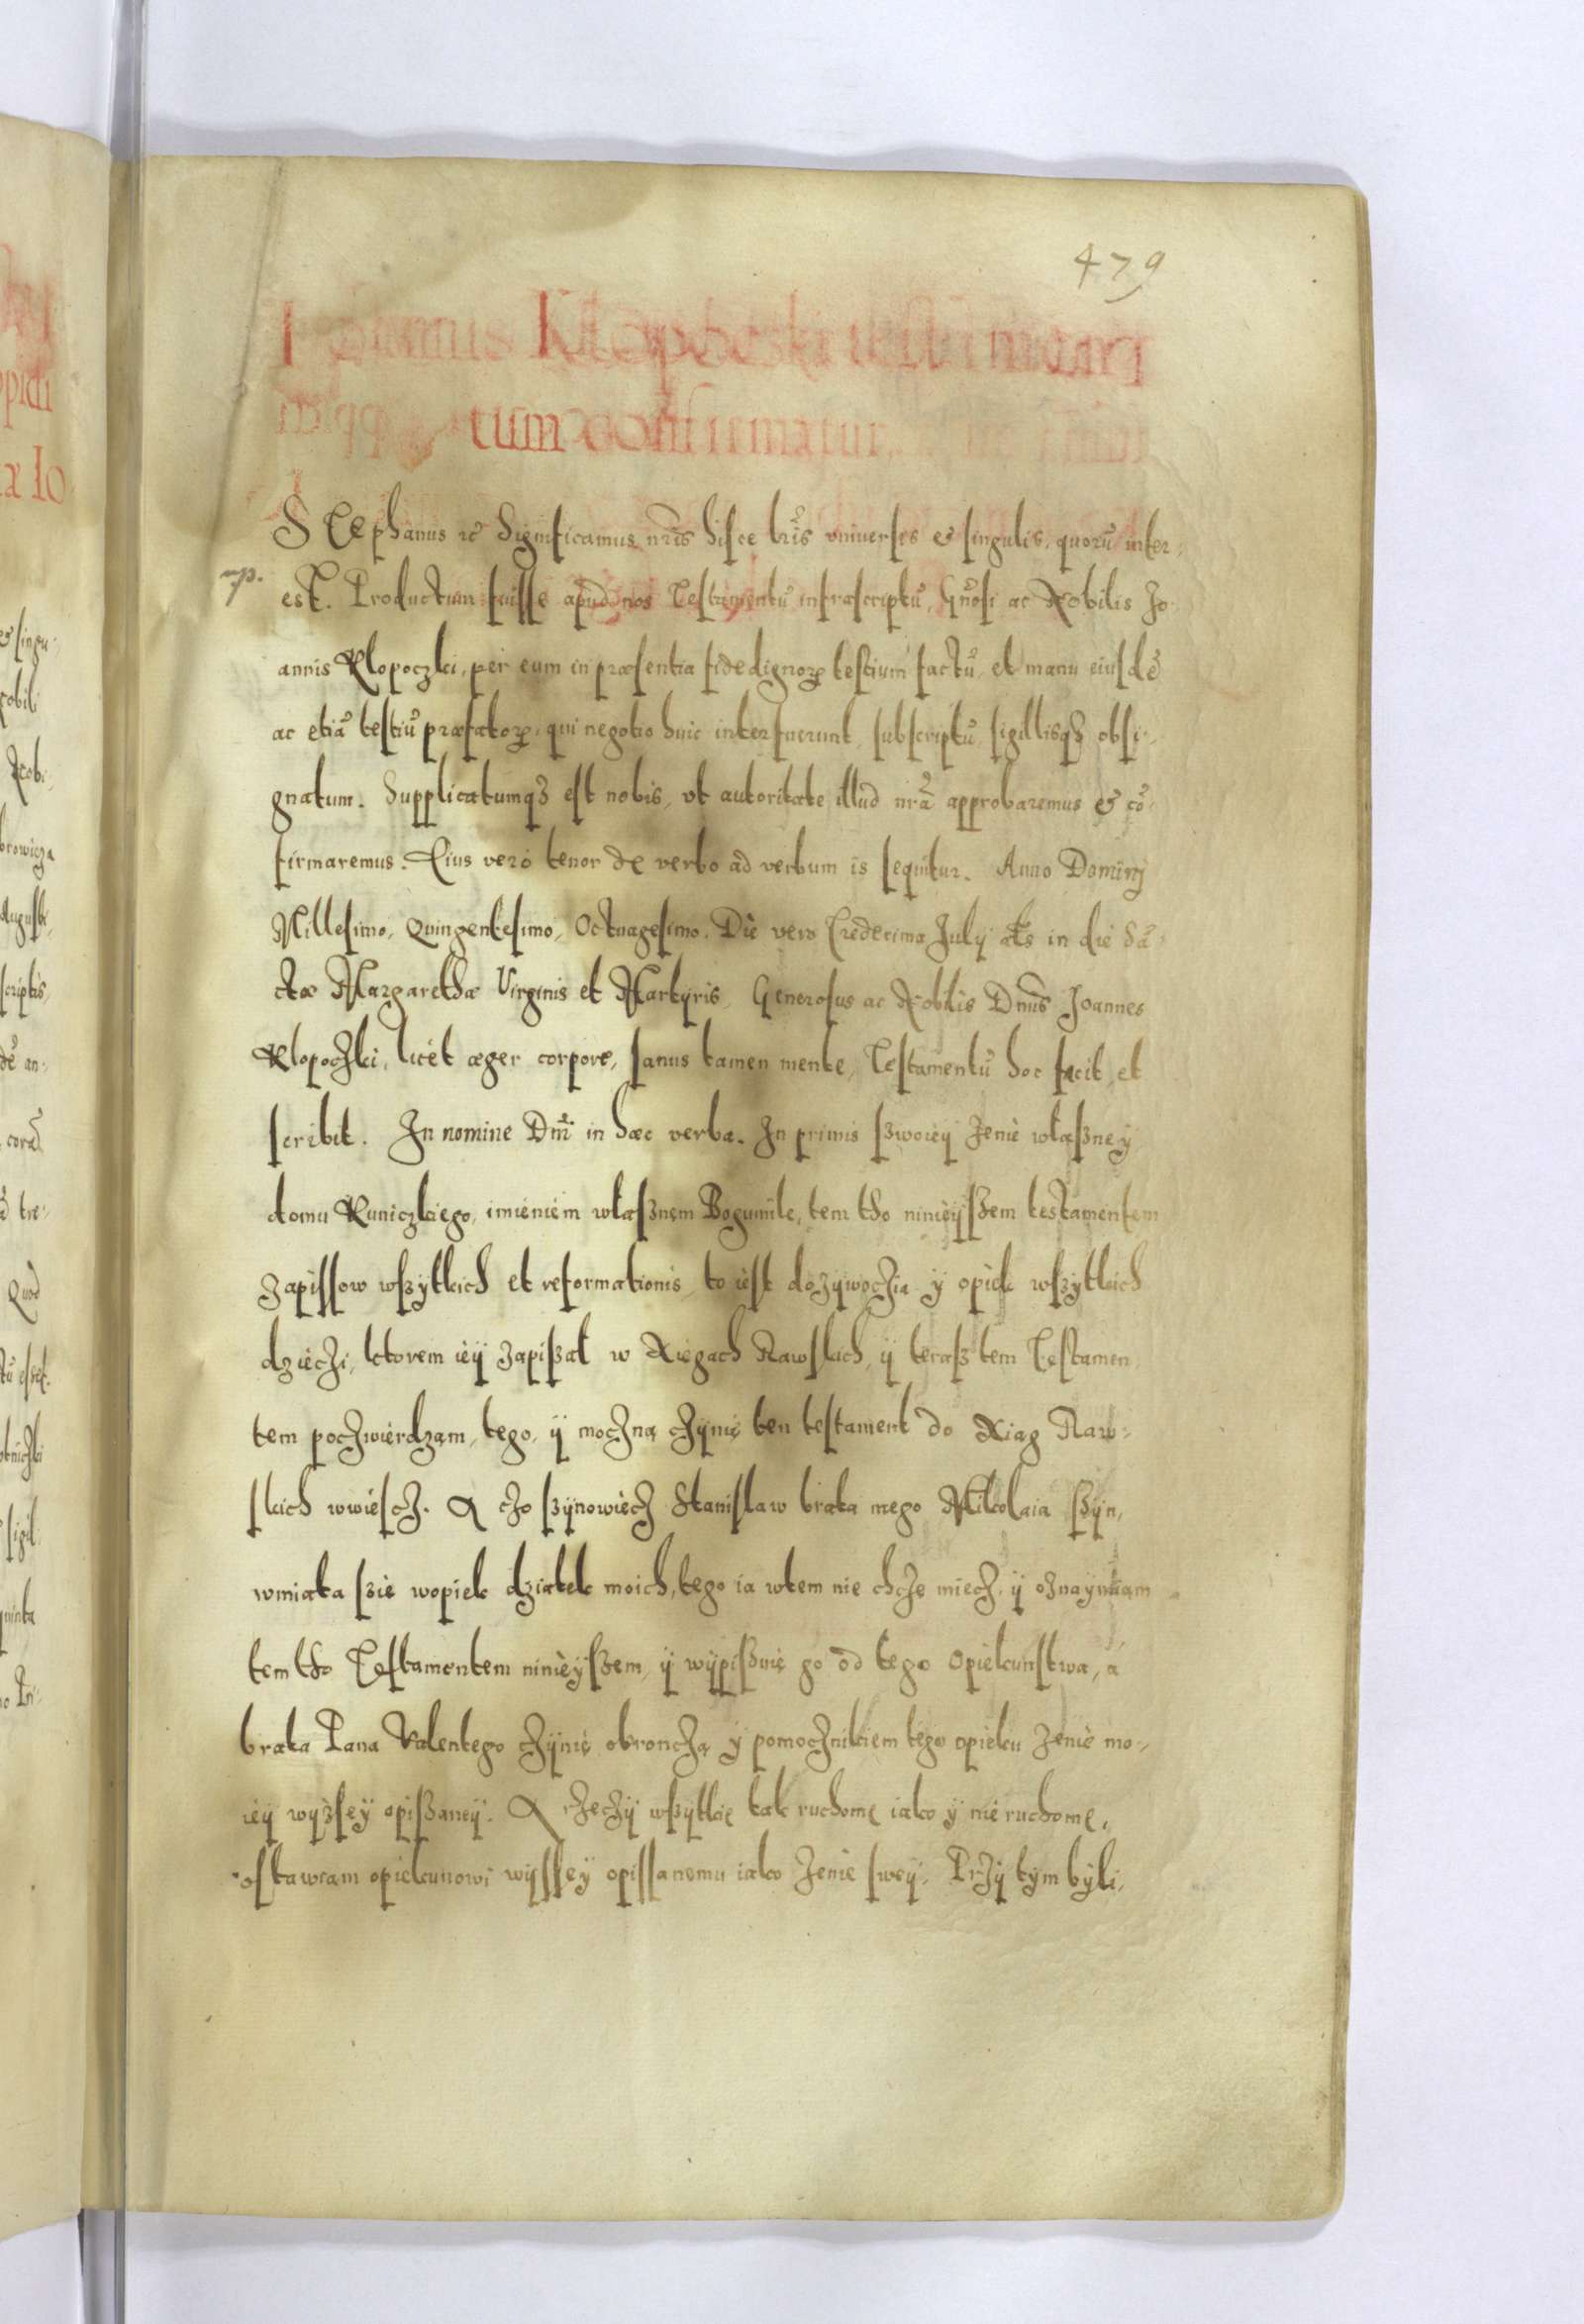 479
Joannis Klopocski testamen
tum confirmatur
Stephanus etc̃ Significamus nr̃is hisce lr̃is vniuersis & singulis, quorũ inter-
mp.
est. Productum fuisse apud nos Testamentũ infrascriptũ, Gñosi ac Nobilis Jo-
annis Klopoczki, per eum in præsentia fide dignoꝝ testium factũ, et manu eiusdẽ
ac etiã testiũ præfatoꝝ, qui negotio huic interfuerunt, subscriptũ, sigillisqꝫ obsi-
gnatum. Supplicatumqꝫ est nobis, vt autoritate illud nr̃a approbaremus & cõ-
firmaremus. Eius verò tenor de verbo ad verbum is sequitur. Anno Dominj
Millesimo, Quingentesimo, Octuagesimo. Die vero Tredecima July ał̃s in die Sã-
ctæ Margarethæ Virginis et Martyris, Generosus ac Nobilis Dnũs Joannes
Klopoczki, licèt æger corpore, sanus tamen mente, Testamentũ hoc facit, et
scribit. In nomine Dnĩ in hæc verba. In primis szwoiey zenie własznеy
domu Kuniczkiego, imieniem właſznem Bogumile, tem tho ninieyszem testamentem
zapissow wszytkich et reformationis, to iest dozywoczia y opiek wszytkich
dzieczi, ktorem iey zapiszał w Xięgach Rawskich, y terasz tem Testamen
tem poczwierdzam, tego, y moczną czynię ten testament do Xiąg Raw-
skich wwiescz. A czo szynowiecz Stanislaw brata mego Mikolaia szyn,
wmiata szie wopiek dziatek moich, tego ia wtem nie chczę miecz, y oznaymuam
tem tho Testamentem ninieyszem, y wypisznię go od tego opiekunstwa, á
brata Pana Valentego czynię obronczą y pomocznikiem tego opieku zenie mo-
iey wyzsey opiszaney. A rzeczy wszytkie tak ruchome iako y nie ruchome,
ostawiam opiekunowi wyssey opissanemu iako zenie swey. Przy tym byli,